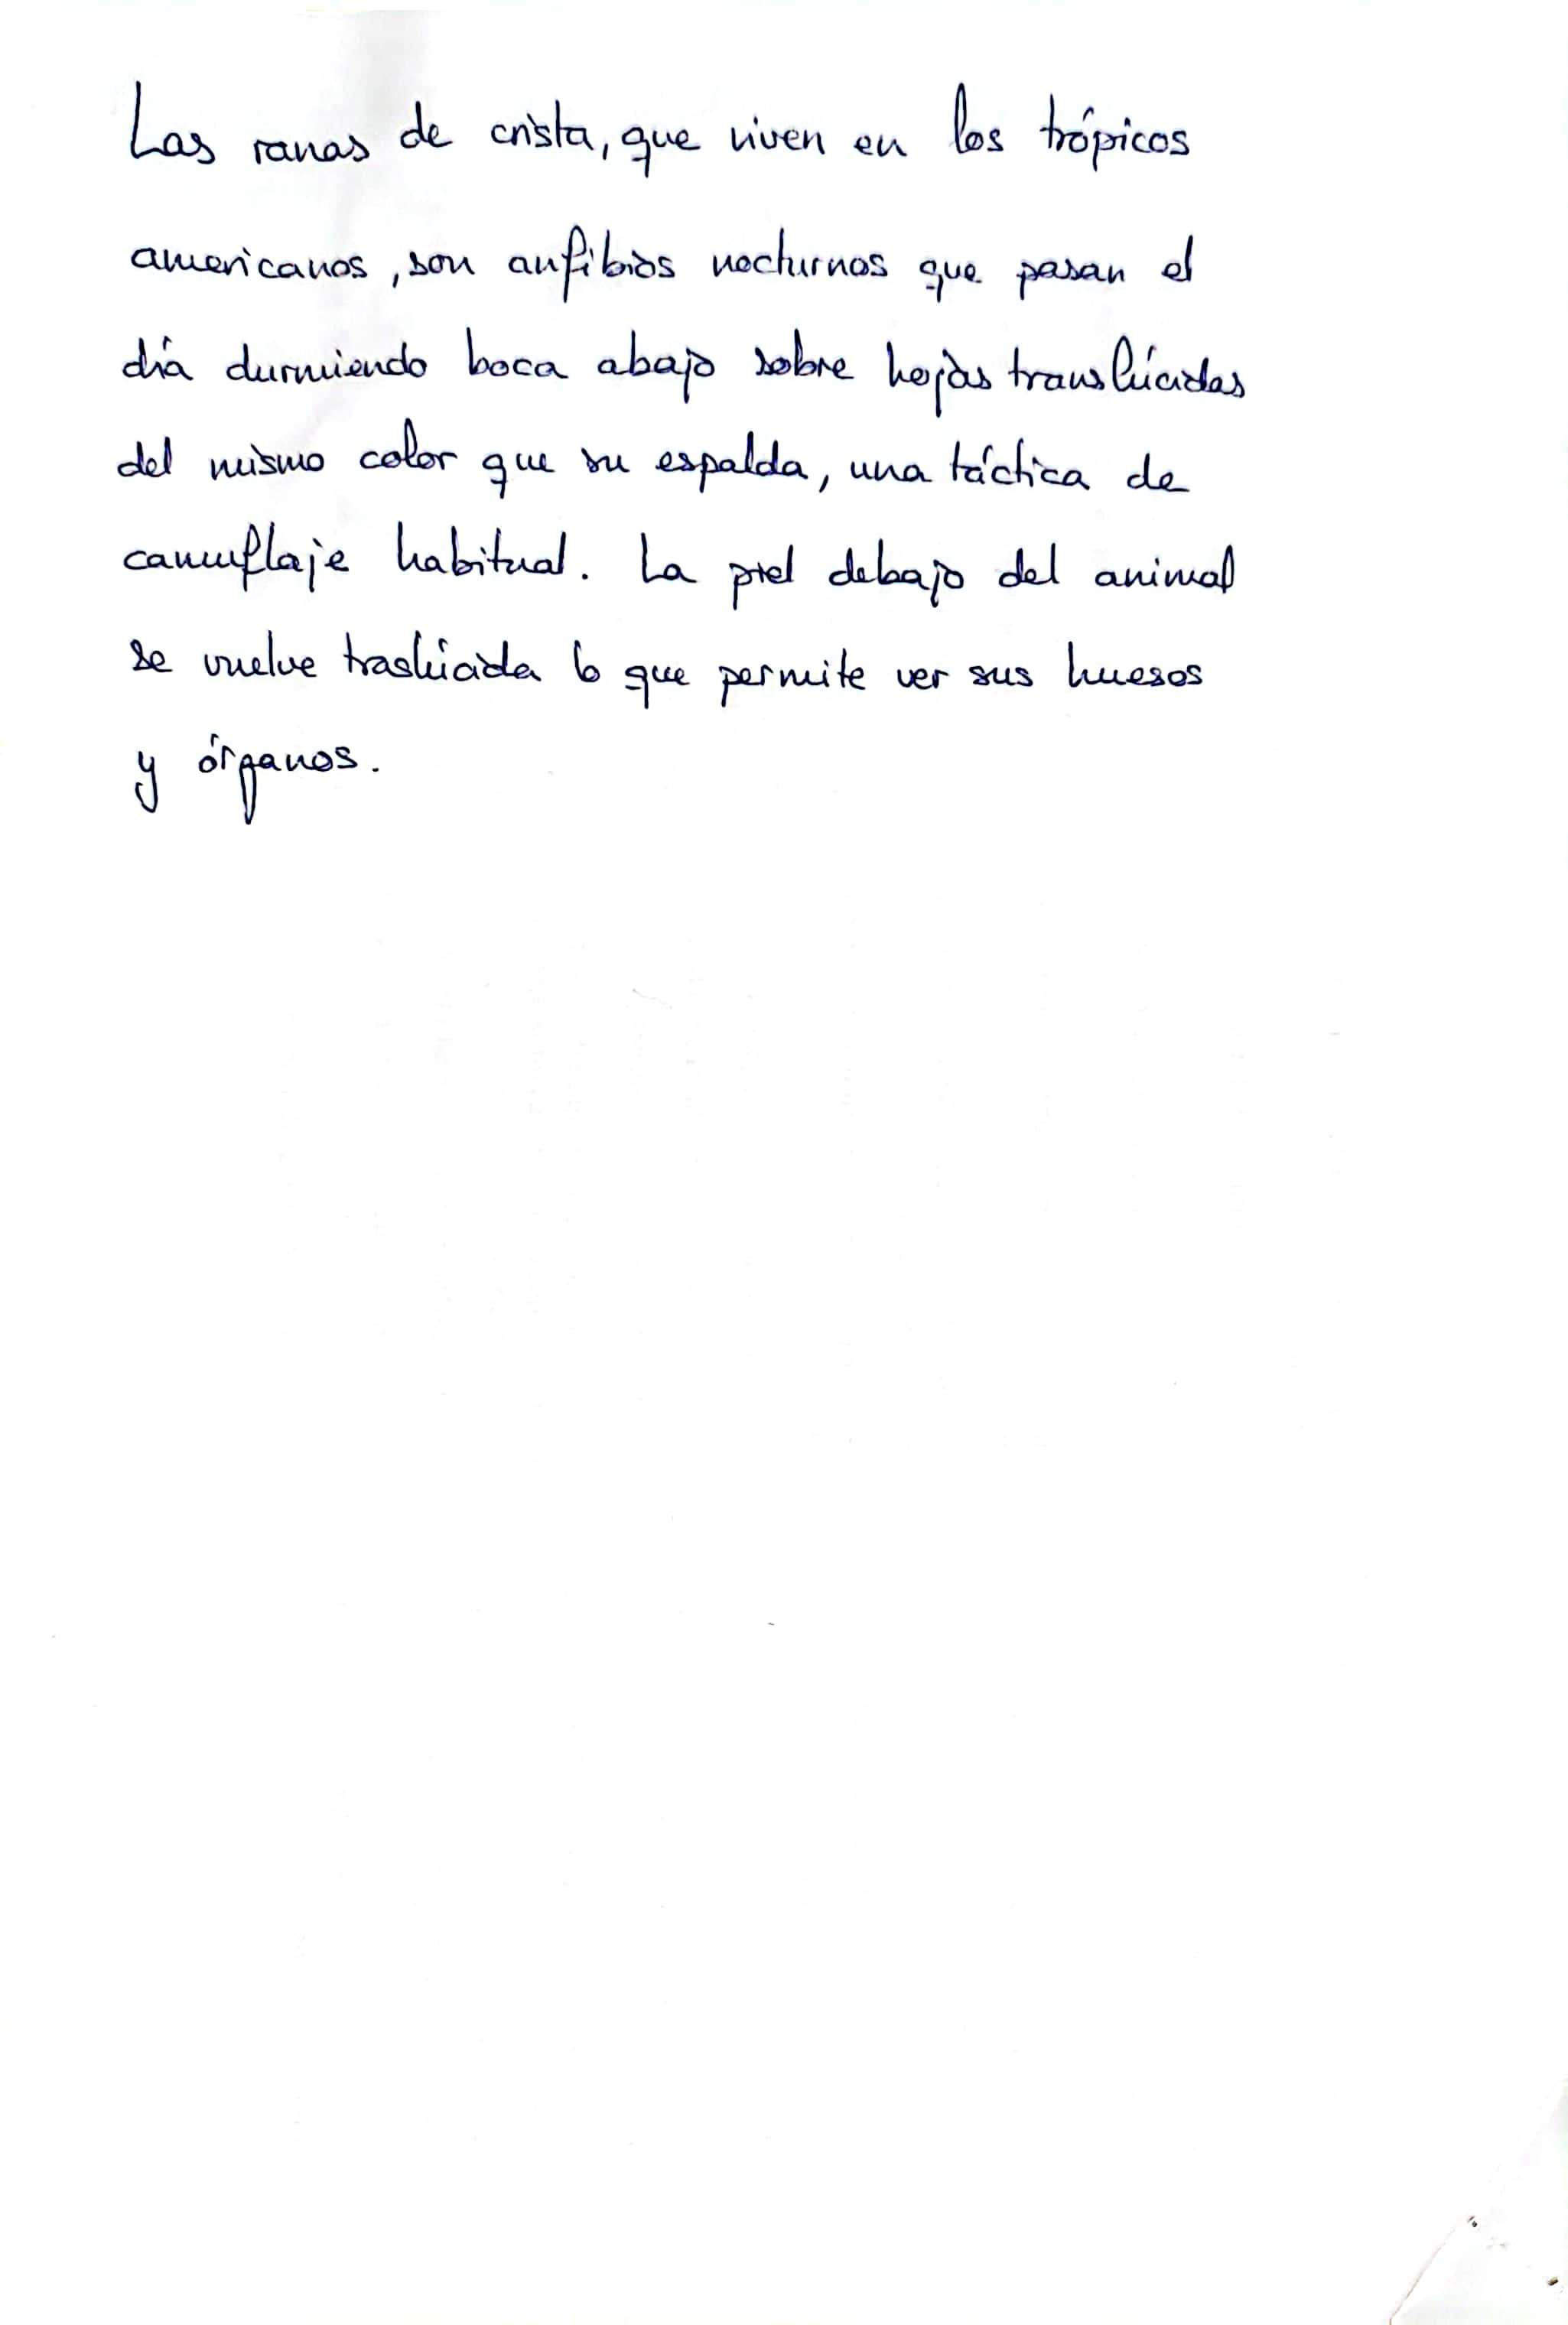 Las ranas de crista, que viven en los trópicos
americanos, son anfibios nocturnos que pasan el
día durmiendo boca abajo sobre hojas translúcidas
del mismo color que su espalda, una táctica de
camuflaje habitual. La piel debajo del animal
se vuelve traslúcida lo que permite ver sus huesos
y órganos.